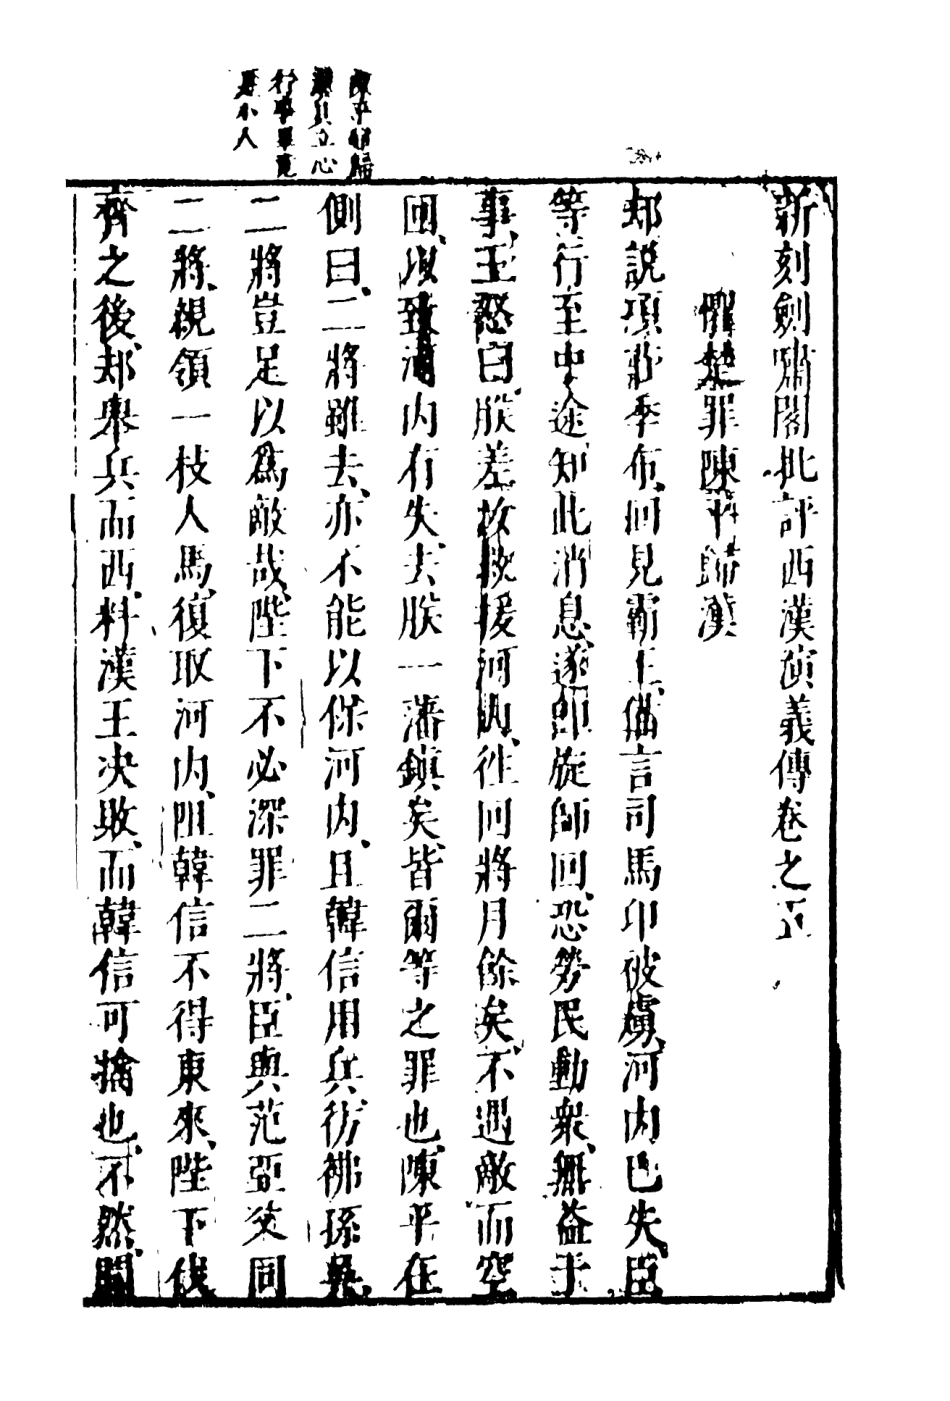 新刻劍嘯閣批評西漢演義傳卷之五
懼楚罪陳平歸漢
却說項莊季布回見霸王備言司馬卬被虜河內已失臣
等行至中途知此消息遂即旋師回恐勞民動衆無益于
事王怒曰朕差故救援河內徃回將月餘矣不遇敵而空
回以致河內有失去朕一藩鎮矣皆爾等之罪也陳平在
側曰二將雖去亦不能以保河內且韓信用兵彷彿孫吳
二將豈足以爲敵哉陛下不必深罪二將臣與范亞父同
二將親領一枝人馬復取河內阻韓信不得東來陛下伐
齊之後却舉兵而西料漢王决敗而韓信可擒也不然關
陳平歸
漢其立心
行事畢竟
是小人